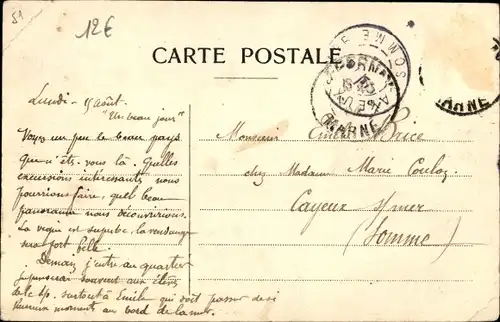 51
12€
CARTE POSTALE
Lundi - 15 Août.
"Un beau jour"
Voyez un peu le beau pays
Que n'êtes vous là. Quelles
excursions intéressantes nous
pourrions faire, quel beau
panorama nous découvririons.
La vigne est superbe, la vendange
sera fort belle.
Demain j'entre au quartier
je penserai souvent aux élèves
de le surtout à Emile qui doit passer de si
heureux moments au bord de la mer.
Monsieur Emile Brice
chez Madame Marie Couloz
Cayeux s/mer
(Somme)
DORMANS
MARNE
SOMME
MARNE